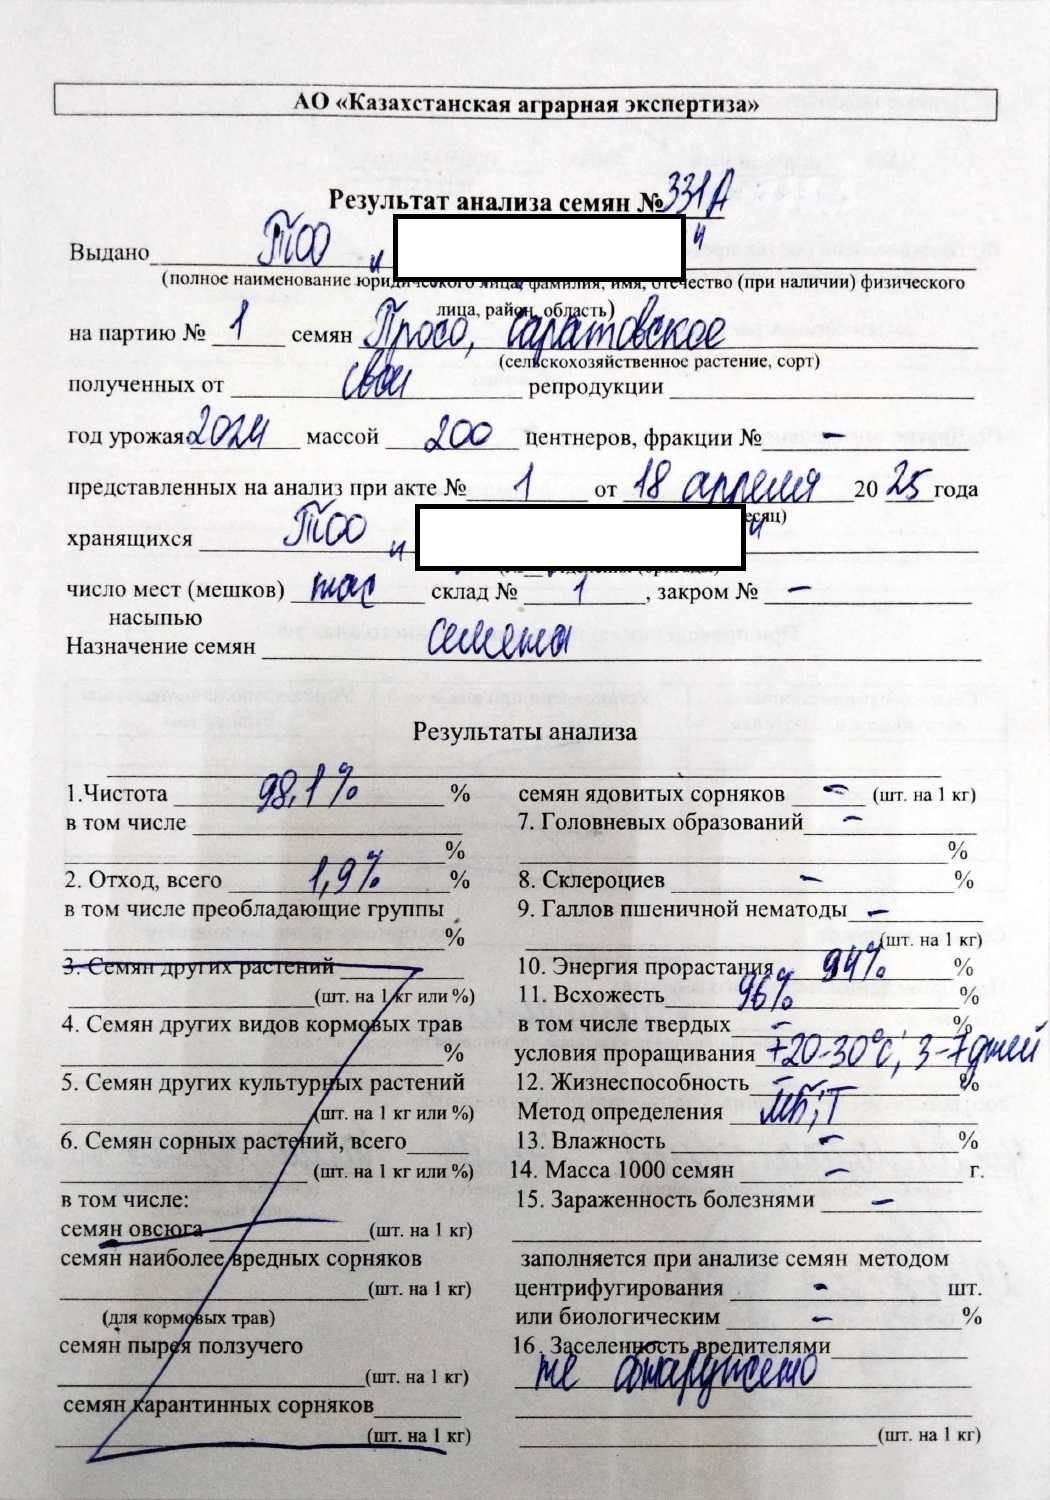 АО «Казахстанская аграрная экспертиза»
Результат анализа семян № 331А
Выдано ТОО " "
(полное наименование юридического лица, фамилия, имя, отчество (при наличии) физического
лица, район, область)
на партию № 1 семян Просо, Саратовское
(сельскохозяйственное растение, сорт)
полученных от свои репродукции
год урожая 2024 массой 200 центнеров, фракции № –
представленных на анализ при акте № 1 от 18 апреля 20 25 года
есяц)
хранящихся ТОО " "
число мест (мешков) нас склад № 1, закром № –
насыпью
Назначение семян семена
Результаты анализа
1.Чистота 98,1% %
в том числе
%
2. Отход, всего 1,9% %
в том числе преобладающие группы
%
3. Семян других растений
(шт. на 1 кг или %)
4. Семян других видов кормовых трав
%
5. Семян других культурных растений
(шт. на 1 кг или %)
6. Семян сорных растений, всего
(шт. на 1 кг или %)
в том числе:
семян овсюга (шт. на 1 кг)
семян наиболее вредных сорняков
(шт. на 1 кг)
(для кормовых трав)
семян пырея ползучего
(шт. на 1 кг)
семян карантинных сорняков
(шт. на 1 кг)
семян ядовитых сорняков – (шт. на 1 кг)
7. Головневых образований –
%
8. Склероциев – %
9. Галлов пшеничной нематоды –
(шт. на 1 кг)
10. Энергия прорастания 94% %
11. Всхожесть 96% %
в том числе твердых – %
условия проращивания +20-30°С, 3-7 дней
12. Жизнеспособность – %
Метод определения МБ; Т
13. Влажность – %
14. Масса 1000 семян – г.
15. Зараженность болезнями –
заполняется при анализе семян методом
центрифугирования – шт.
или биологическим – %
16. Заселенность вредителями
не обнаружено
(шт. на 1 кг)